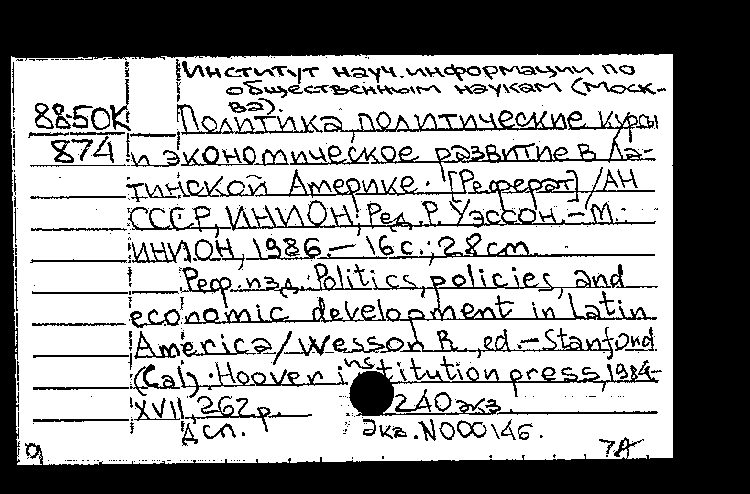 Институт науч. информации по
общественным наукам (Моск-
ва).
8850К
874
Политика, политические курсы
и экономическое развитие в Ла-
тинской Америке. [Реферат] / АН
СССР, ИНИОН; Ред. Р. Уэссон. – М.:
ИНИОН, 1986. – 16 с.; 28 cm
Реф. изд.: Politics, policies, and
economic development in Latin
America / Wesson R., ed. – Stanford
(Cal): Hoover institution press, 1984.-
XVII, 262 p. 240 экз.
Дсп. Экз. N000146.
9